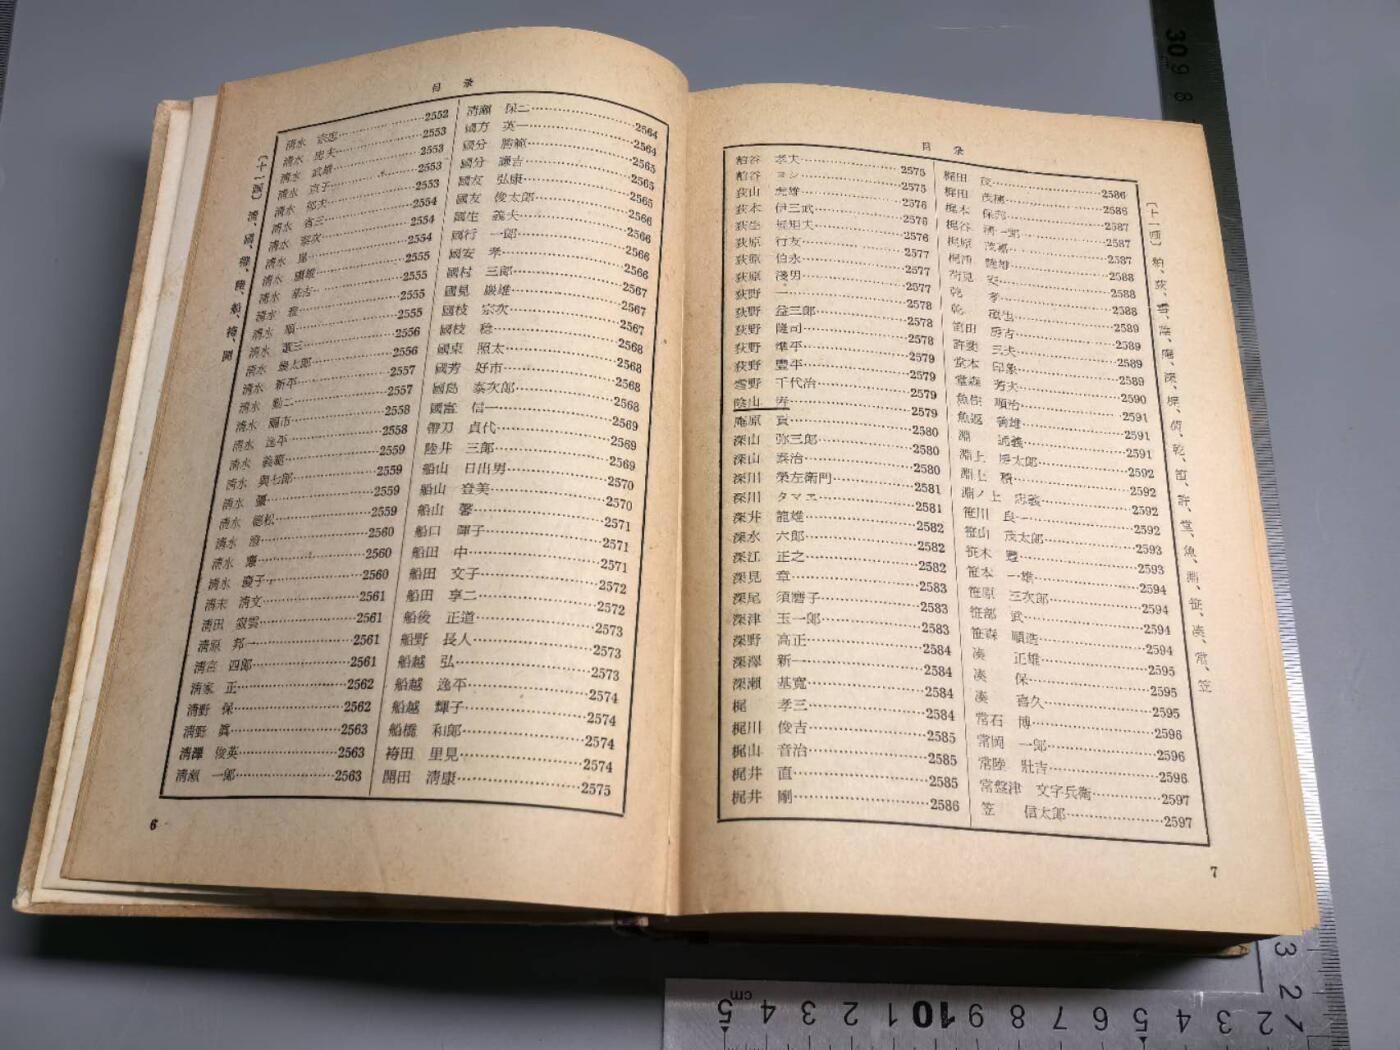 目 录
清水 宗忠 2552
清水 忠夫 2553
清水 武雄 2553
清水 貞子 2553
清水 郁夫 2553
清水 省三 2554
清水 泰次 2554
清水 2554
清水 2555
清水 2555
清水 2555
清水 順 2555
清水 2556
清水 與太郎 2556
清水 新平 2557
清水 勤二 2557
清水 2558
清水 逸平 2558
清水 義範 2559
清水 與七郎 2559
清水 2559
清水 2559
清水 澄 2560
清水 2560
清水 慶子 2560
清末 清文 2561
清田 寂雲 2561
清原 邦一 2561
清宮 四郎 2561
清家 正 2562
清野 保 2562
清野 眞 2563
清澤 俊英 2563
清瀬 一郎 2563
清瀬 保二 2564
國方 英一 2564
國分 勝範 2565
國分 謙吉 2565
國友 弘康 2565
國友 俊太郎 2566
國生 義夫 2566
國行 一郎 2566
國安 孝 2566
國村 三郎 2567
國見 2567
國枝 宗次 2567
國枝 稔 2568
國東 照太 2568
國芳 好市 2568
國島 泰次郎 2568
國富 信一 2569
帶刀 貞代 2569
陸井 三郎 2569
船山 日出男 2570
船山 登美 2570
船山 馨 2571
船口 暉子 2571
船田 中 2571
船田 文子 2572
船田 享二 2572
船後 正道 2573
船野 長人 2573
船越 弘 2573
船越 逸平 2574
船越 輝子 2574
船橋 和郎 2574
袴田 里見 2574
開田 清康 2575
6
目 录
粕谷 孝夫 2575
粕谷 ヨシ 2575
荻山 虎雄 2576
荻本 伊三武 2576
荻生 規矩夫 2576
荻原 行友 2577
荻原 伯永 2577
荻原 淺男 2577
荻野 一 2578
荻野 益三郎 2578
荻野 隆司 2578
荻野 準平 2579
荻野 豐平 2579
雪野 千代治 2579
陰山 寿 2579
庵原 貢 2580
深山 弥三郎 2580
深山 泰治 2580
深川 榮左衛門 2581
深川 タマヱ 2581
深井 龍雄 2582
深水 六郎 2582
深江 正之 2582
深見 章 2583
深尾 須磨子 2583
深津 玉一郎 2583
深野 高正 2584
深澤 新一 2584
深瀬 基寬 2584
梶 孝三 2584
梶川 俊吉 2585
梶山 音治 2585
梶井 直 2585
梶井 剛 2586
梶田 茂 2586
梶田 茂穗 2586
梶木 保邦 2587
梶谷 2587
梶原 茂嘉 2587
梶浦 2588
荷見 安 2588
乾 孝 2588
乾 2589
笛田 2589
許斐 三夫 2589
堂本 印象 2589
堂森 芳夫 2590
魚住 順治 2591
魚返 善雄 2591
淵 通義 2591
淵上 房太郎 2592
淵上 2592
淵ノ上 忠義 2592
笹川 良一 2592
笹山 茂太郎 2593
笹木 2593
笹本 一雄 2594
笹原 三次郎 2594
笹部 武 2594
笹森 順造 2594
湊 正雄 2595
湊 保 2595
湊 喜久 2595
常石 博 2596
常岡 一郎 2596
常陸 壯吉 2596
常盤津 文字兵衛 2597
笠 信太郎 2597
7